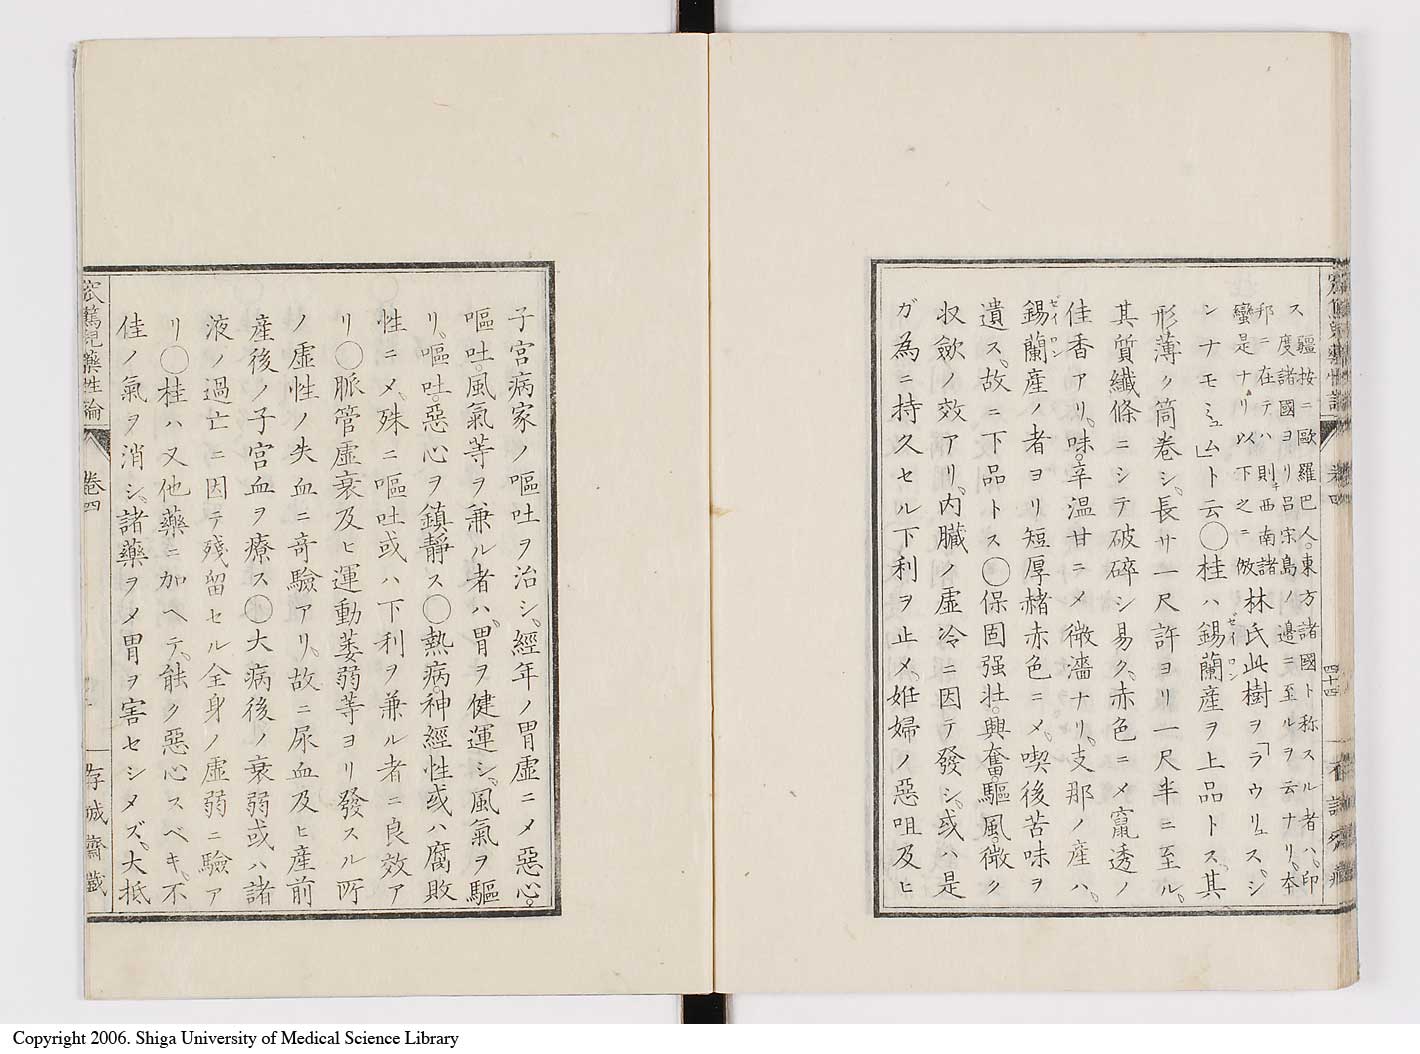 ス
疆按ニ歐羅巴人。東方諸國ト称スル者ハ、印
度諸國ヨリ呂宋島ノ邊ニ至ルヲ云ナリ。本
邦ニ在テハ則チ西南諸
蠻是ナリ以下之ニ倣
林氏此樹ヲ「ラウリュス。シ
ンナモミュム」ト云◯桂ハ錫蘭産ヲ上品トス。其
ゼイロン
形薄ク筒卷シ、長サ一尺許ヨリ一尺半ニ至ル。
其質纖條ニシテ破碎シ易ク、赤色ニメ竄透ノ
佳香アリ。味。辛温甘ニメ微濇ナリ。支那ノ産ハ、
錫蘭産ノ者ヨリ短厚赭赤色ニメ、喫後苦味ヲ
ゼイロン
遺ス。故ニ下品トス◯保固强壮。興奮。驅風微ク
収歛ノ效アリ。内臓ノ虚冷ニ因テ發シ、或ハ是
ガ為ニ持久セル下利ヲ止メ、妊婦ノ惡咀及ヒ
四十四
子宮病家ノ嘔吐ヲ治シ、經年ノ胃虚ニメ惡心。
嘔吐。風氣等ヲ兼ル者ハ、胃ヲ健運シ、風氣ヲ驅
リ、嘔吐。惡心ヲ鎮靜ス◯熱病。神經性或ハ腐敗
性ニメ、殊ニ嘔吐或ハ下利ヲ兼ル者ニ良效ア
リ◯脈管虚衰及ヒ運動萎弱等ヨリ發スル所
ノ虚性ノ失血ニ奇驗アリ。故ニ尿血及ヒ産前
産後ノ子宮血ヲ療ス◯大病後ノ衰弱或ハ諸
液ノ過亡ニ因テ殘留セル全身ノ虚弱ニ驗ア
リ◯桂ハ又他藥ニ加ヘテ、能ク惡心スベキ、不
佳ノ氣ヲ消シ、諸藥ヲメ胃ヲ害セシメズ。大抵
篤兒藥性論
卷四
存誠齋藏
Copyright 2006. Shiga University of Medical Science Library